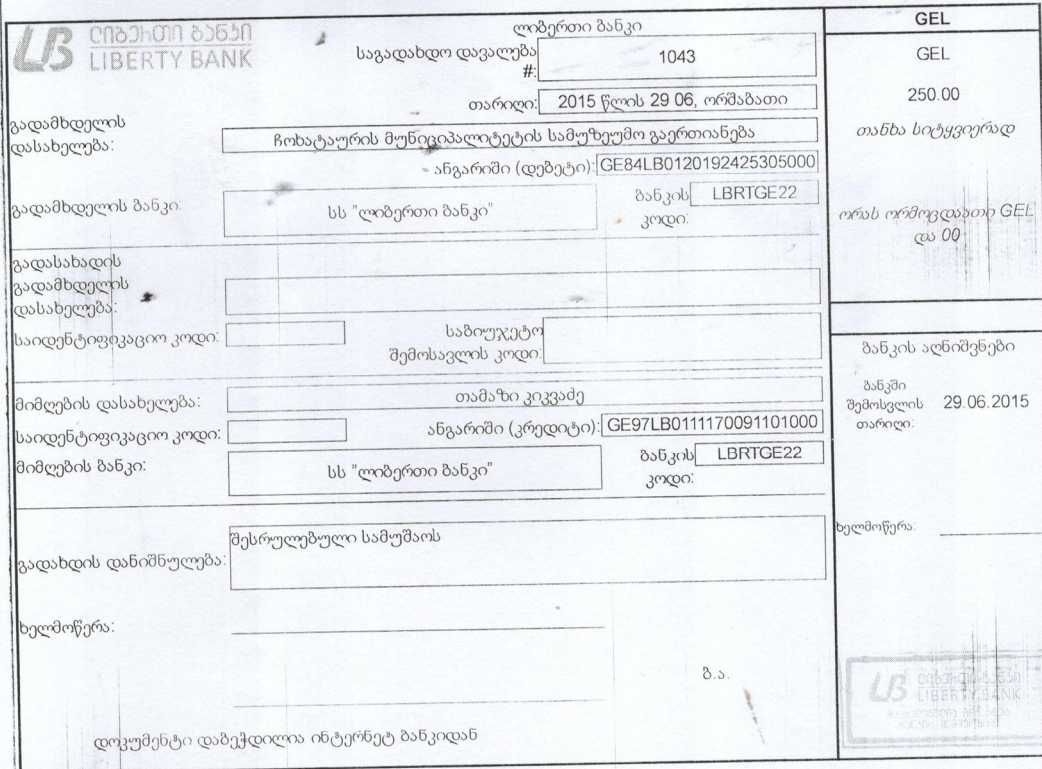 ლიბერთი ბანკი
LIBERTY BANK
ლიბერთი ბანკი
საგადახდო დავალება #: 1043
თარიღი: 2015 წლის 29 06, ორშაბათი
გადამხდელის დასახელება: ჩოხატაურის მუნიციპალიტეტის სამუზეუმო გაერთიანება
ანგარიში (დებეტი): GE84LB0120192425305000
გადამხდელის ბანკი: სს "ლიბერთი ბანკი"
ბანკის კოდი: LBRTGE22
გადასახადის გადამხდელის დასახელება:
საიდენტიფიკაციო კოდი:
საბიუჯეტო შემოსავლის კოდი:
მიმღების დასახელება: თამაზი კიკვაძე
საიდენტიფიკაციო კოდი:
ანგარიში (კრედიტი): GE97LB0111170091101000
მიმღების ბანკი: სს "ლიბერთი ბანკი"
ბანკის კოდი: LBRTGE22
გადახდის დანიშნულება: შესრულებული სამუშაოს
ხელმოწერა:
ბ.ა.
დოკუმენტი დაბეჭდილია ინტერნეტ ბანკიდან
GEL
GEL
250.00
თანხა სიტყვიერად
ორას ორმოცდაათი GEL
და 00
ბანკის აღნიშვნები
ბანკში შემოსვლის თარიღი: 29.06.2015
ხელმოწერა:
LB ლიბერთი ბანკი
LIBERTY BANK